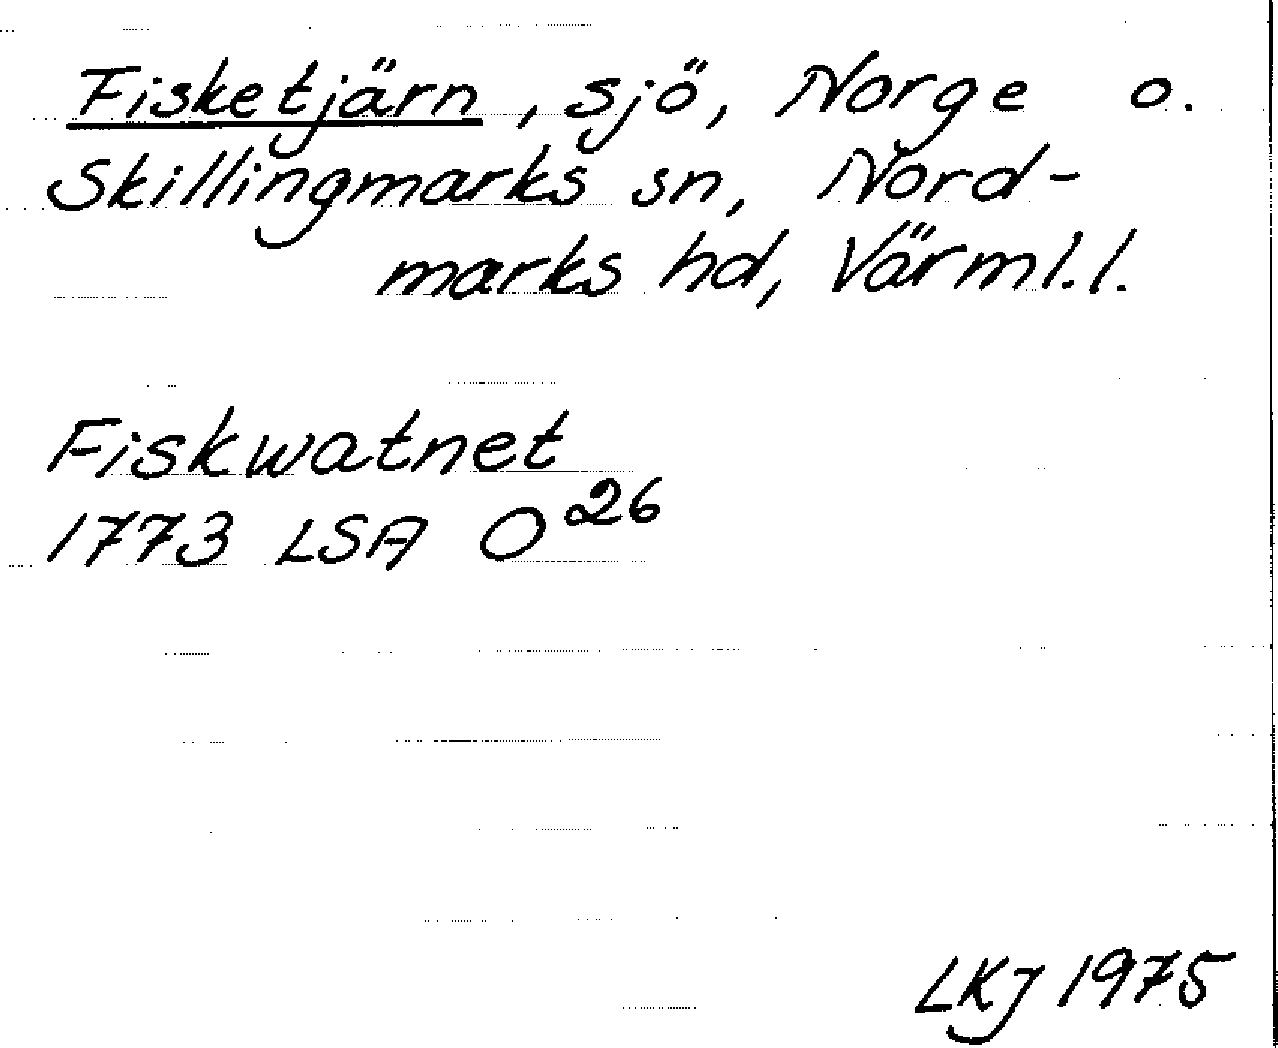 Fisketjärn, sjö, Norge o.
Skillingmarks sn, Nord-
marks hd, Värml.l.
Fiskwatnet
1773 LSA O 26
LKJ 1975